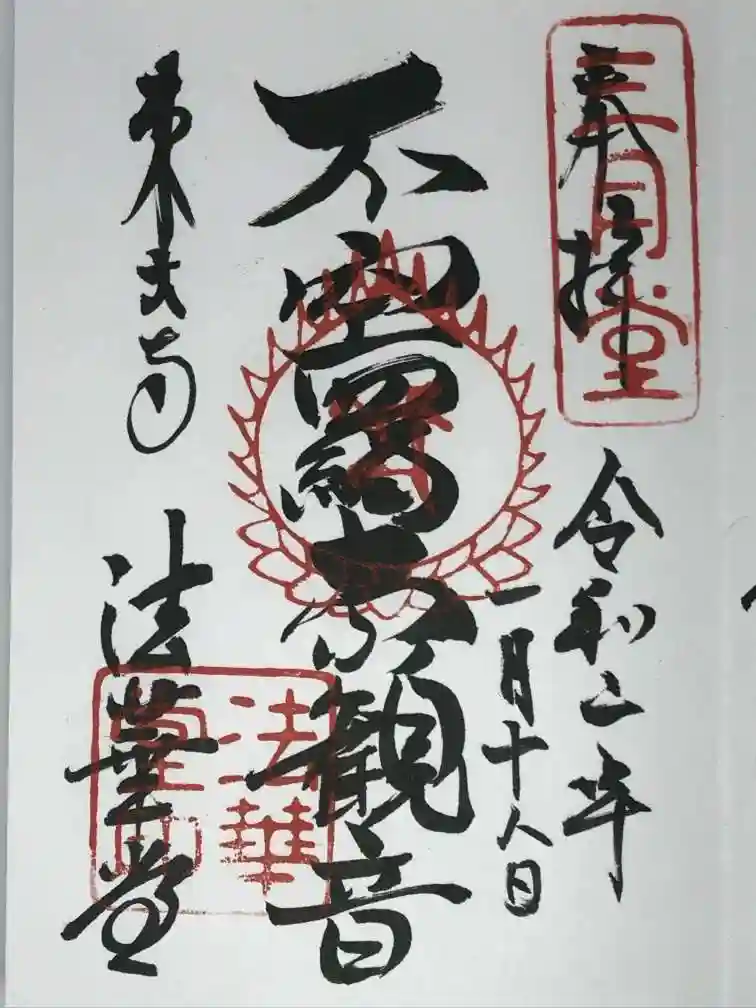 三月堂
奉拝
令和二年
一月十八日
不空羂索観音
東大寺 法華堂
法華堂印